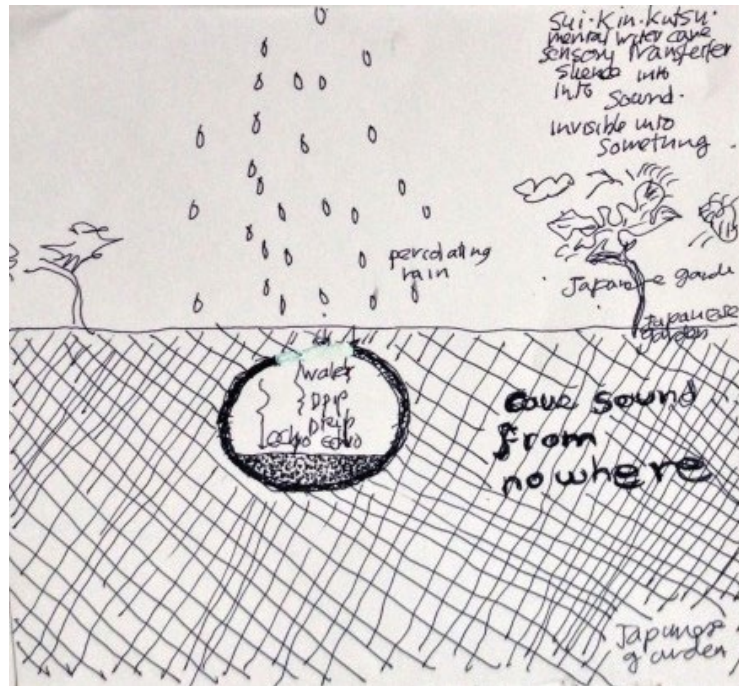 Sui·Kin·Kutsu·
mental water cave
sensory Transferter
silence into
into Sound·
invisible into
Something.
percolating
rain
Japanese garde
Japanese
garden
water
Drip
Drip
echo echo
cave sound
from
nowhere
Japanese
garden